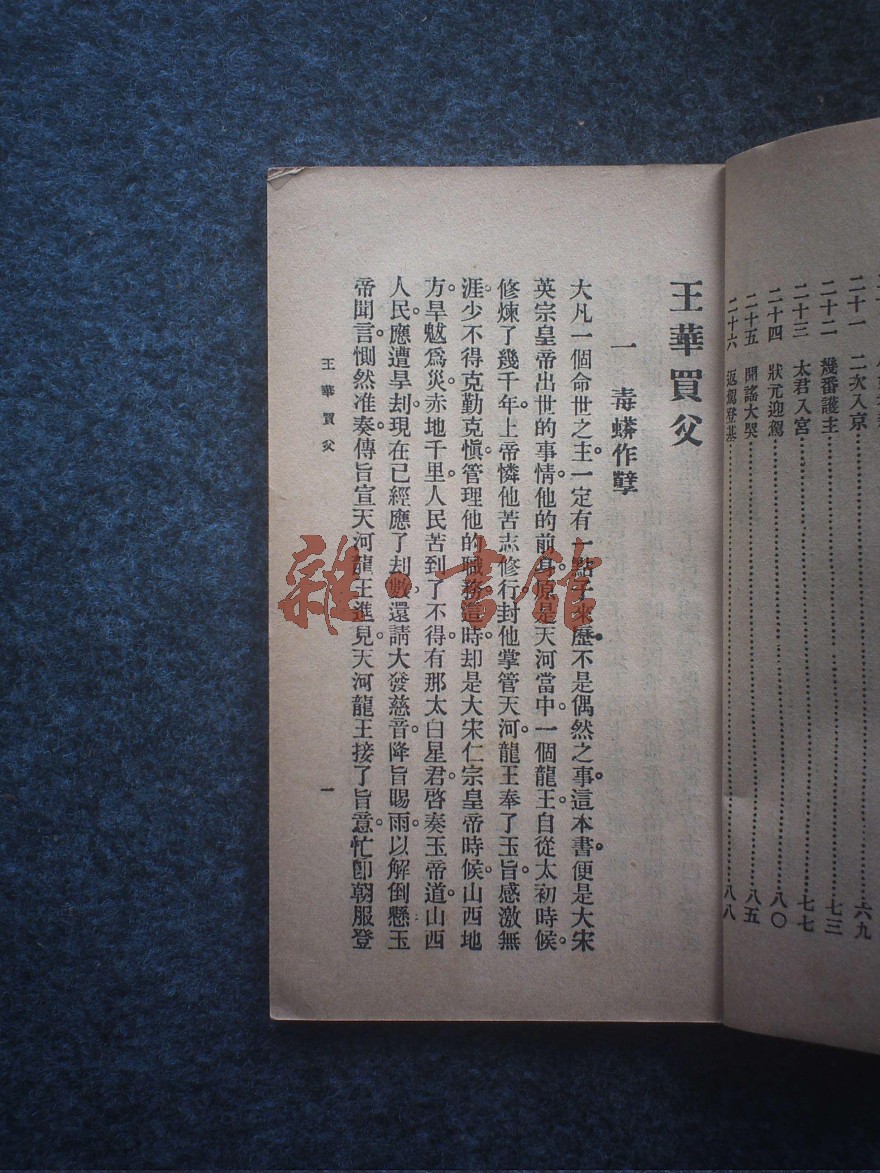 二十一 二次入京……六九
二十二 幾番護主……七三
二十三 太君入宮……七七
二十四 狀元迎駕……八〇
二十五 聞謠大哭……八五
二十六 返駕登基……八八
王華買父
一 毒蟒作孽
大凡一個命世之主。一定有一點子來歷。不是偶然之事。這本書。便是大宋
英宗皇帝出世的事情。他的前身。原是天河當中。一個龍王。自從太初時候。
修煉了幾千年。上帝憐他苦志修行。封他掌管天河。龍王奉了玉旨。感激無
涯。少不得克勤克愼。管理他的職務。這時。却是大宋仁宗皇帝時候。山西地
方。旱魃爲災。赤地千里。人民苦到了不得。有那太白星君。啓奏玉帝道。山西
人民。應遭旱刦。現在已經應了刦數。還請大發慈音。降旨賜雨。以解倒懸。玉
帝聞言。惻然准奏。傳旨宣天河龍王進見。天河龍王接了旨意。忙卽朝服登
王華買父
一
雜·書館